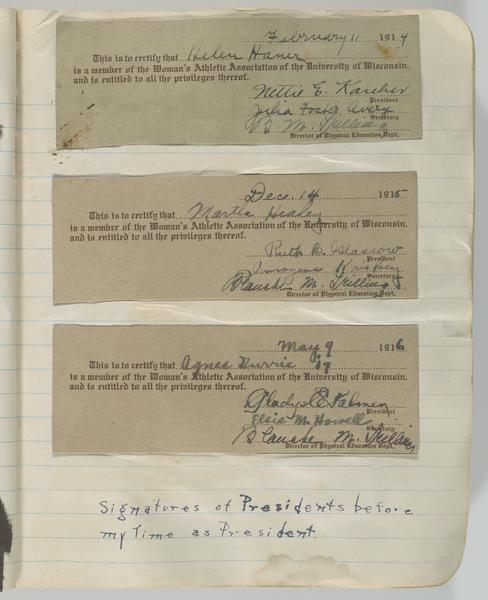 February 11 1914
This is to certify that Helen Haner
is a member of the Woman's Athletic Association of the University of Wisconsin,
and is entitled to all the privileges thereof.
Nettie E. Karcher
President
Julia Foster Avery
Secretary
B. M. Trilling
Director of Physical Education Dept.
Dec. 14 1915
This is to certify that Martha Healey
is a member of the Woman's Athletic Association of the University of Wisconsin,
and is entitled to all the privileges thereof.
Ruth B. Glassow
President
Secretary
Blanche M. Trilling
Director of Physical Education Dept.
May 9 1916
This is to certify that Agnes 17
is a member of the Woman's Athletic Association of the University of Wisconsin,
and is entitled to all the privileges thereof.
Gladys E Palmer
President
Elsie M. Howell
Secretary
Blanche M. Trilling
Director of Physical Education Dept.
Signatures of Presidents before
my time as President.